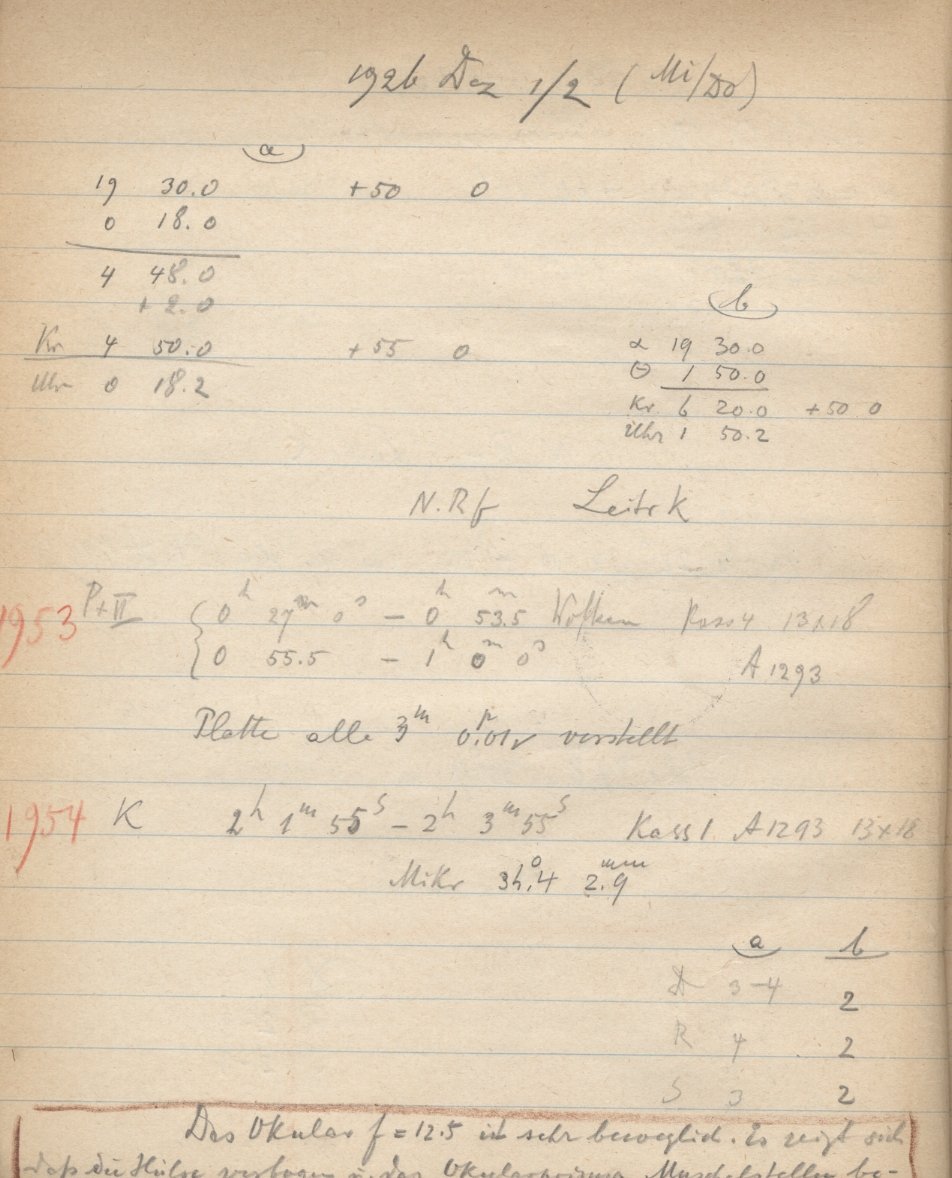 1926 Dez 1/2 (Mi/Do)
a
19 30.0 +50 0
0 18.0
4 48.0
+2.0
Kr 4 50.0 +55 0
Uhr 0 18.2
b
α 19 30.0
Θ 1 50.0
Kr 6 20.0 +50 0
Uhr 1 50.2
N.Rf Leitr K
1953 P+II 0h 27m 0s – 0h 53.5m Wolken Kass 4 13x18
0 55.5 – 1h 0m 0s A 1293
Platte alle 3m verstellt
1954 K 2h 1m 55s – 2h 3m 55s Kass 1 A 1293 13x18
Mikr 2.9mm
a b
D 3–4 2
R 4 2
S 3 2
Das Okular f = 12.5 ist sehr beweglich. Es zeigt sich
daß die Hülse verbogen u. das